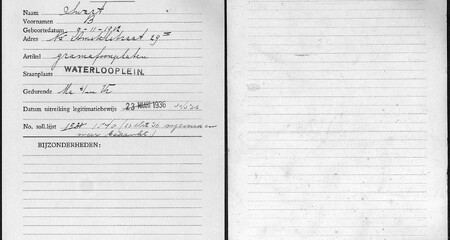 Naam Swart
Voornamen B
Geboortedatum 9-11-1912
Adres Nw Amstelstraat 29 III
Artikel gramafoonplaten
Staanplaats WATERLOOPLEIN.
Gedurende Ma t/m Vr
Datum uitreiking legitimatiebewijs 23 MAART 1936
No. soll.lijst
BIJZONDERHEDEN: